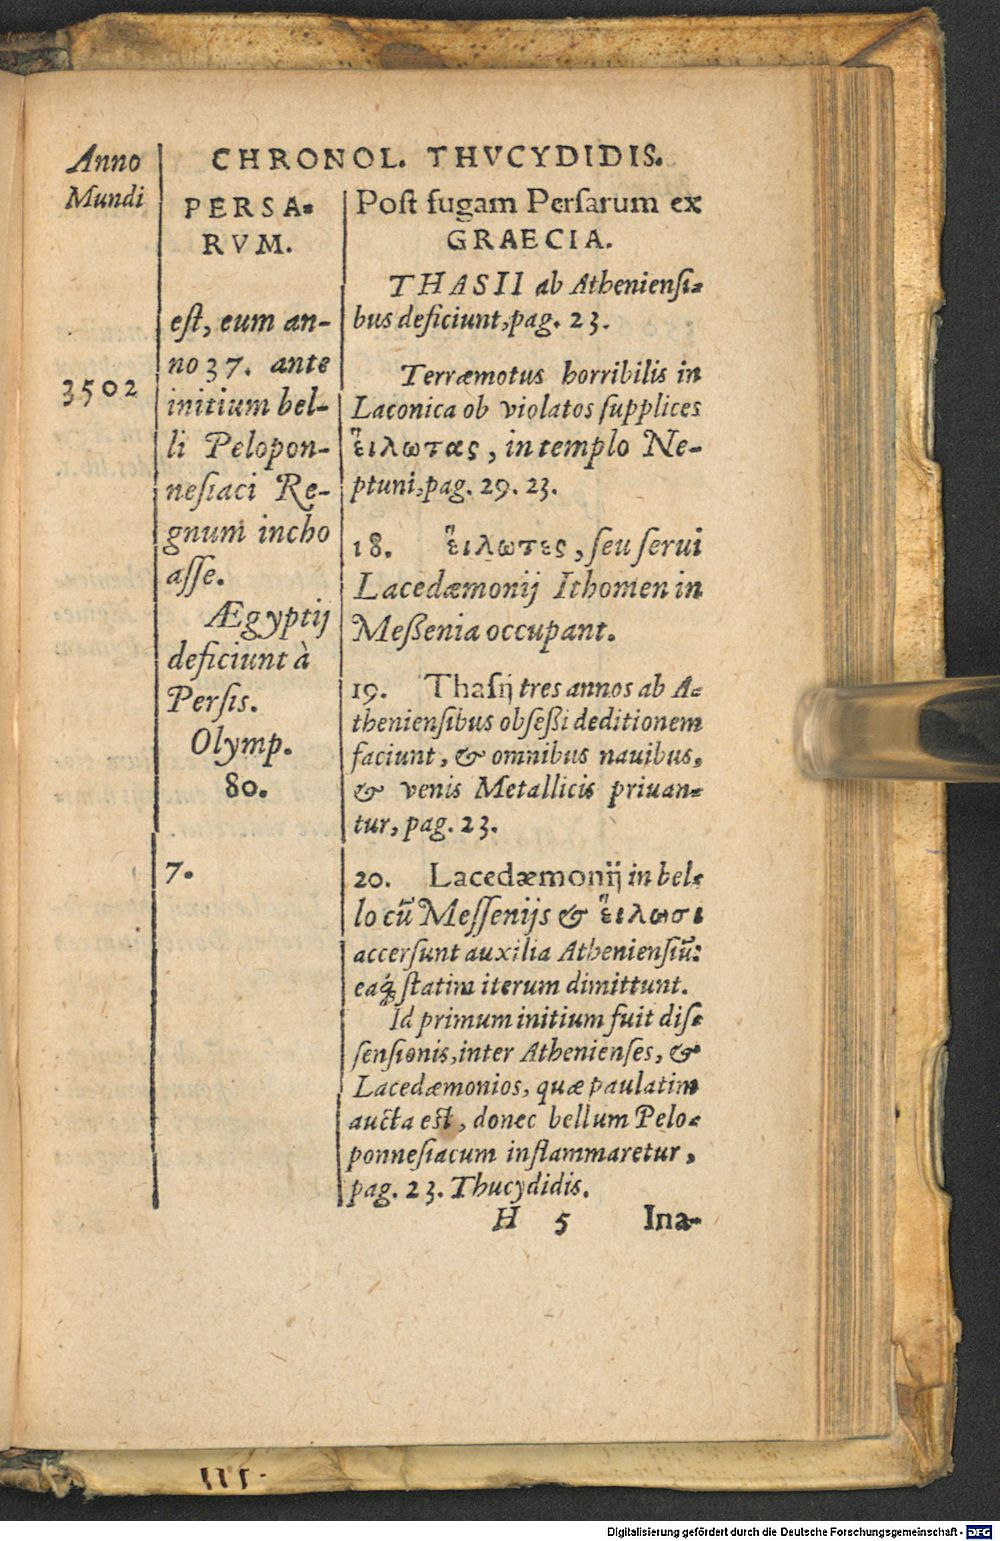 Anno
Mundi
3502
CHRONOL. THVCYDIDIS.
PERSA-
RVM.
est, eum an-
no 37. ante
initium bel-
li Pelopon-
nesiaci Re-
gnum incho
asse.
Ægyptij
deficiunt à
Persis.
Olymp.
80.
7.
Post fugam Persarum ex
GRAECIA.
THASII ab Atheniensi-
bus deficiunt, pag. 23.
Terræmotus horribilis in
Laconica ob violatos supplices
εἵλωτας, in templo Ne-
ptuni, pag. 29. 23.
18. εἵλωτες, seu serui
Lacedæmonij Ithomen in
Meßenia occupant.
19. Thasij tres annos ab A-
theniensibus obseßi deditionem
faciunt, & omnibus nauibus,
& venis Metallicis priuan-
tur, pag. 23.
20. Lacedæmonij in bel-
lo cū Messenijs & εἵλωσι
accersunt auxilia Atheniensiū:
eaq́; statim iterum dimittunt.
Id primum initium fuit dis-
sensionis, inter Athenienses, &
Lacedæmonios, quæ paulatim
aucta est, donec bellum Pelo-
ponnesiacum inflammaretur,
pag. 23. Thucydidis.
H 5 Ina-
Digitalisierung gefördert durch die Deutsche Forschungsgemeinschaft - DFG